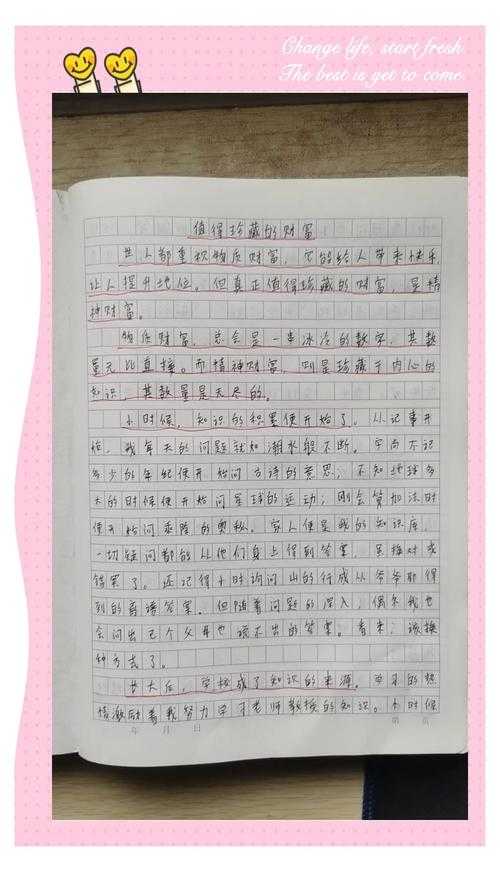 Change life, start fresh
The best is yet to come
值得珍藏的财富
世人都重视物质财富,它能给人带来快乐
让人提升地位。但真正值得珍藏的财富,是精
神财富。
物质财富,总会是一串冰冷的数字,其数
量无比直接。而精神财富,则是珍藏于内心的
知识,其数量是无尽的。
小时候,知识的积累便开始了。从记事开
始,我每天的问题就如潮水般不断。字尚不识
多少的年纪便开始问古诗的意思;不知地球多
大的时候便开始问星球的运动;刚会算加法时
便开始问乘除的奥秘。家人便是我的知识库,
一切疑问都能从他们身上得到答案,
错罢了。还记得小时询问山的行成从爷爷那得
到的答案。但随着问题的深入,偶尔我也
会问出几个父母也说不出的答案。看来,该换
种方式了。
长大后,学校成了知识的来源。学习的热
情激励着我努力学习老师教授的知识。小时候
年 月 日
第 页